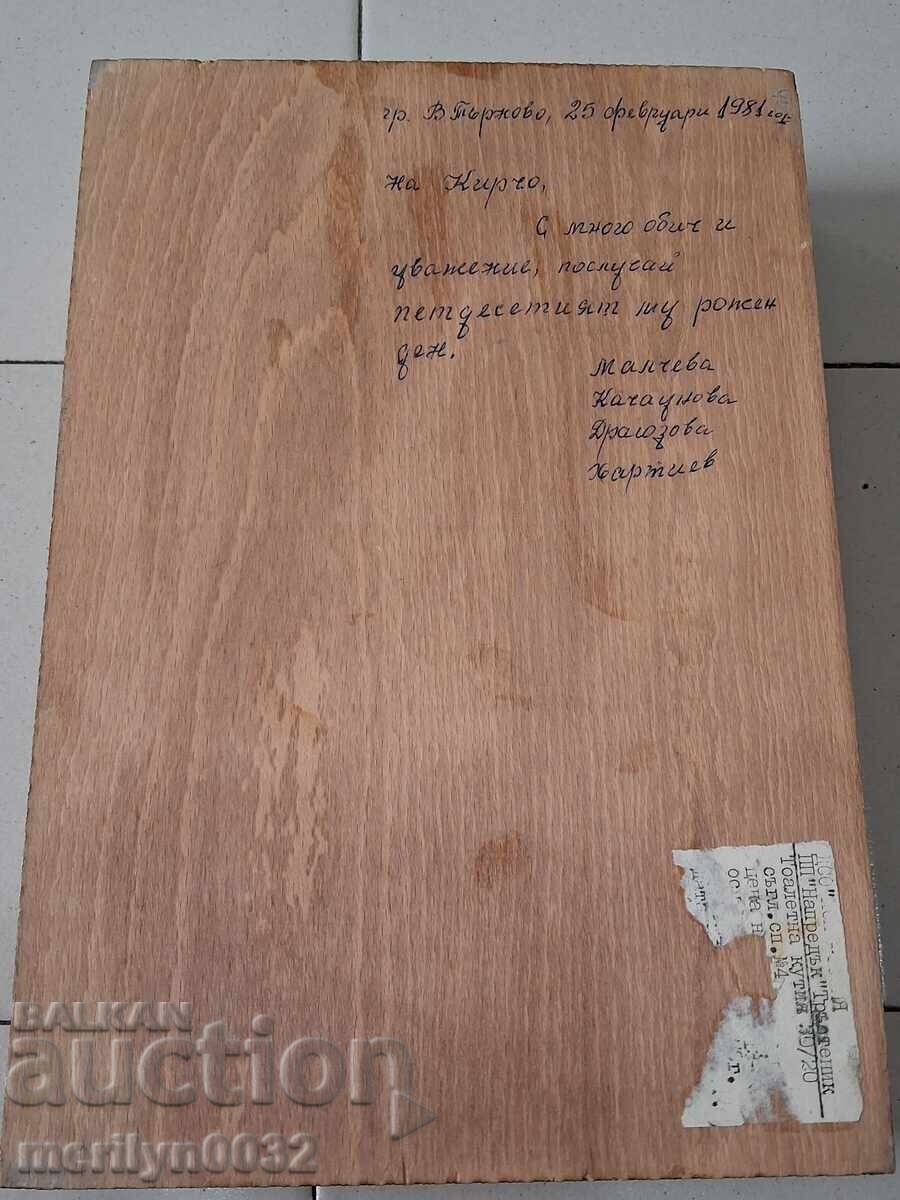 гр. В Търново, 25 февруари 1981 год.
на Кирчо,
С много обич и
уважение, послучай
петдесетият му рожен
ден.
Малчева
Качаунова
Драгозова
Хартиев
ПП "Напредък" Тръстеник
Тоалетна кутия 30/20
съгл.сп.№4
цена н
ос
BALKAN
auction
merilyn0032